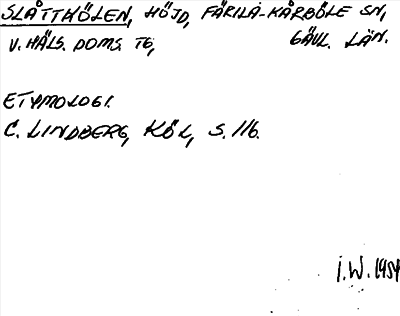 SLÅTTHÖLEN, HÖJD, FÄRILA-KÅRBÖLE SN,
V. HÄLS. DOMS. TG, GÄVL. LÄN.
ETYMOLOGI.
C. LINDBERG, KÖL, S. 116.
I.W. 1954